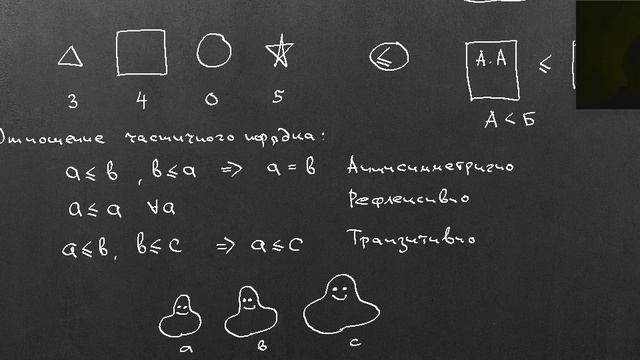 ≤
А.А ≤
3 4 0 5
А < Б
Отношение частичного порядка:
a ≤ b, b ≤ a ⇒ a = b Антисимметрично
a ≤ a ∀a Рефлексивно
a ≤ b, b ≤ c ⇒ a ≤ c Транзитивно
a b c